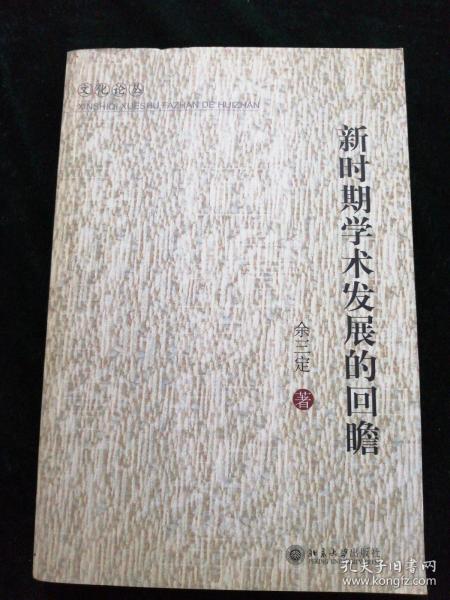 文化论丛
XINSHIQI XUESHU FAZHAN DE HUIZHAN
新时期学术发展的回瞻
余三定
著
北京大学出版社
PEKING UNIVERSITY PRESS
孔夫子旧书网
www.kongfz.com